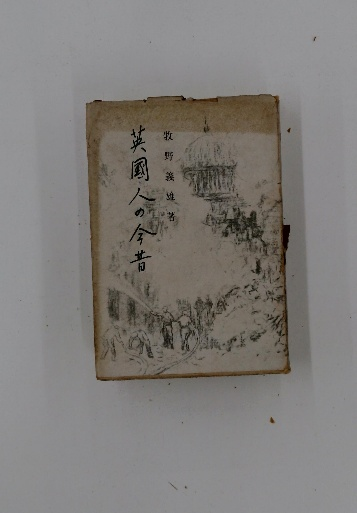 牧野義雄著
英國人の今昔